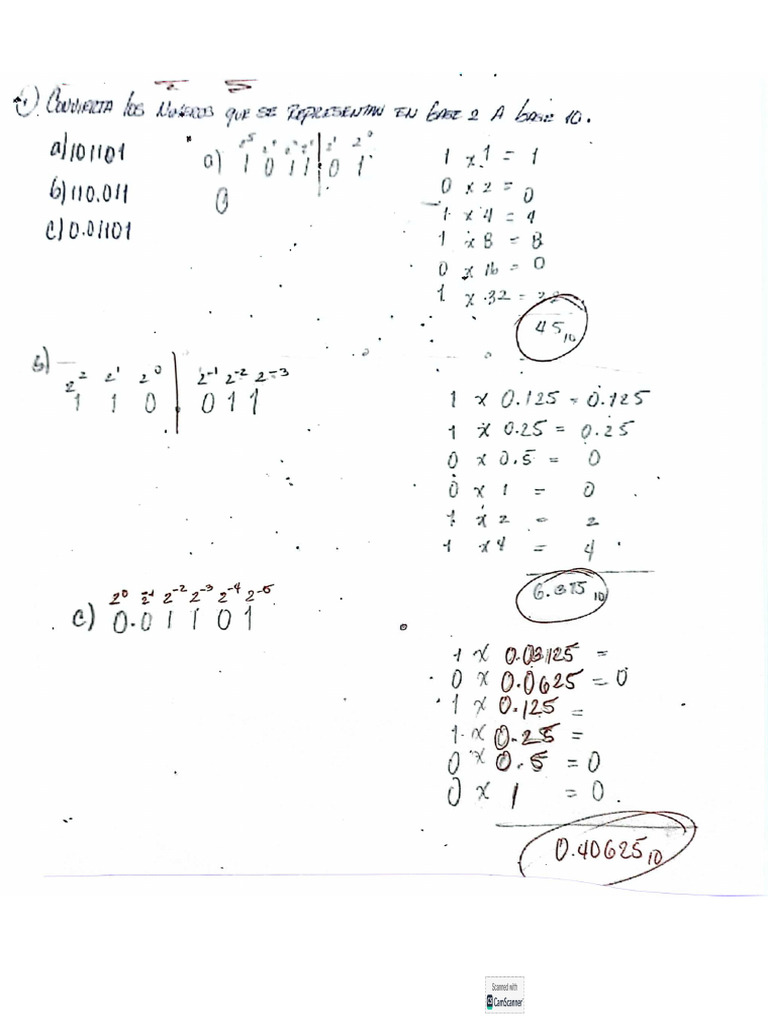 1) CONVIERTA los NÚMEROS QUE SE REPRESENTAN EN base 2 A base 10.
a) 101101
b) 110.011
c) 0.01101
a) 2^5 2^4 2^3 2^2 2^1 2^0
1 0 1 1 0 1
0
1 x 1 = 1
0 x 2 = 0
1 x 4 = 4
1 x 8 = 8
0 x 16 = 0
1 x 32 = 32
45₁₀
b) 2^2 2^1 2^0 2^-1 2^-2 2^-3
1 1 0 . 0 1 1
1 x 0.125 = 0.125
1 x 0.25 = 0.25
0 x 0.5 = 0
0 x 1 = 0
1 x 2 = 2
1 x 4 = 4
6.375₁₀
2^0 2^-1 2^-2 2^-3 2^-4 2^-5
c) 0.0 1 1 0 1
1 x 0.03125 =
0 x 0.0625 = 0
1 x 0.125 =
1 x 0.25 =
0 x 0.5 = 0
0 x 1 = 0.
0.40625₁₀
Scanned with
CS CamScanner